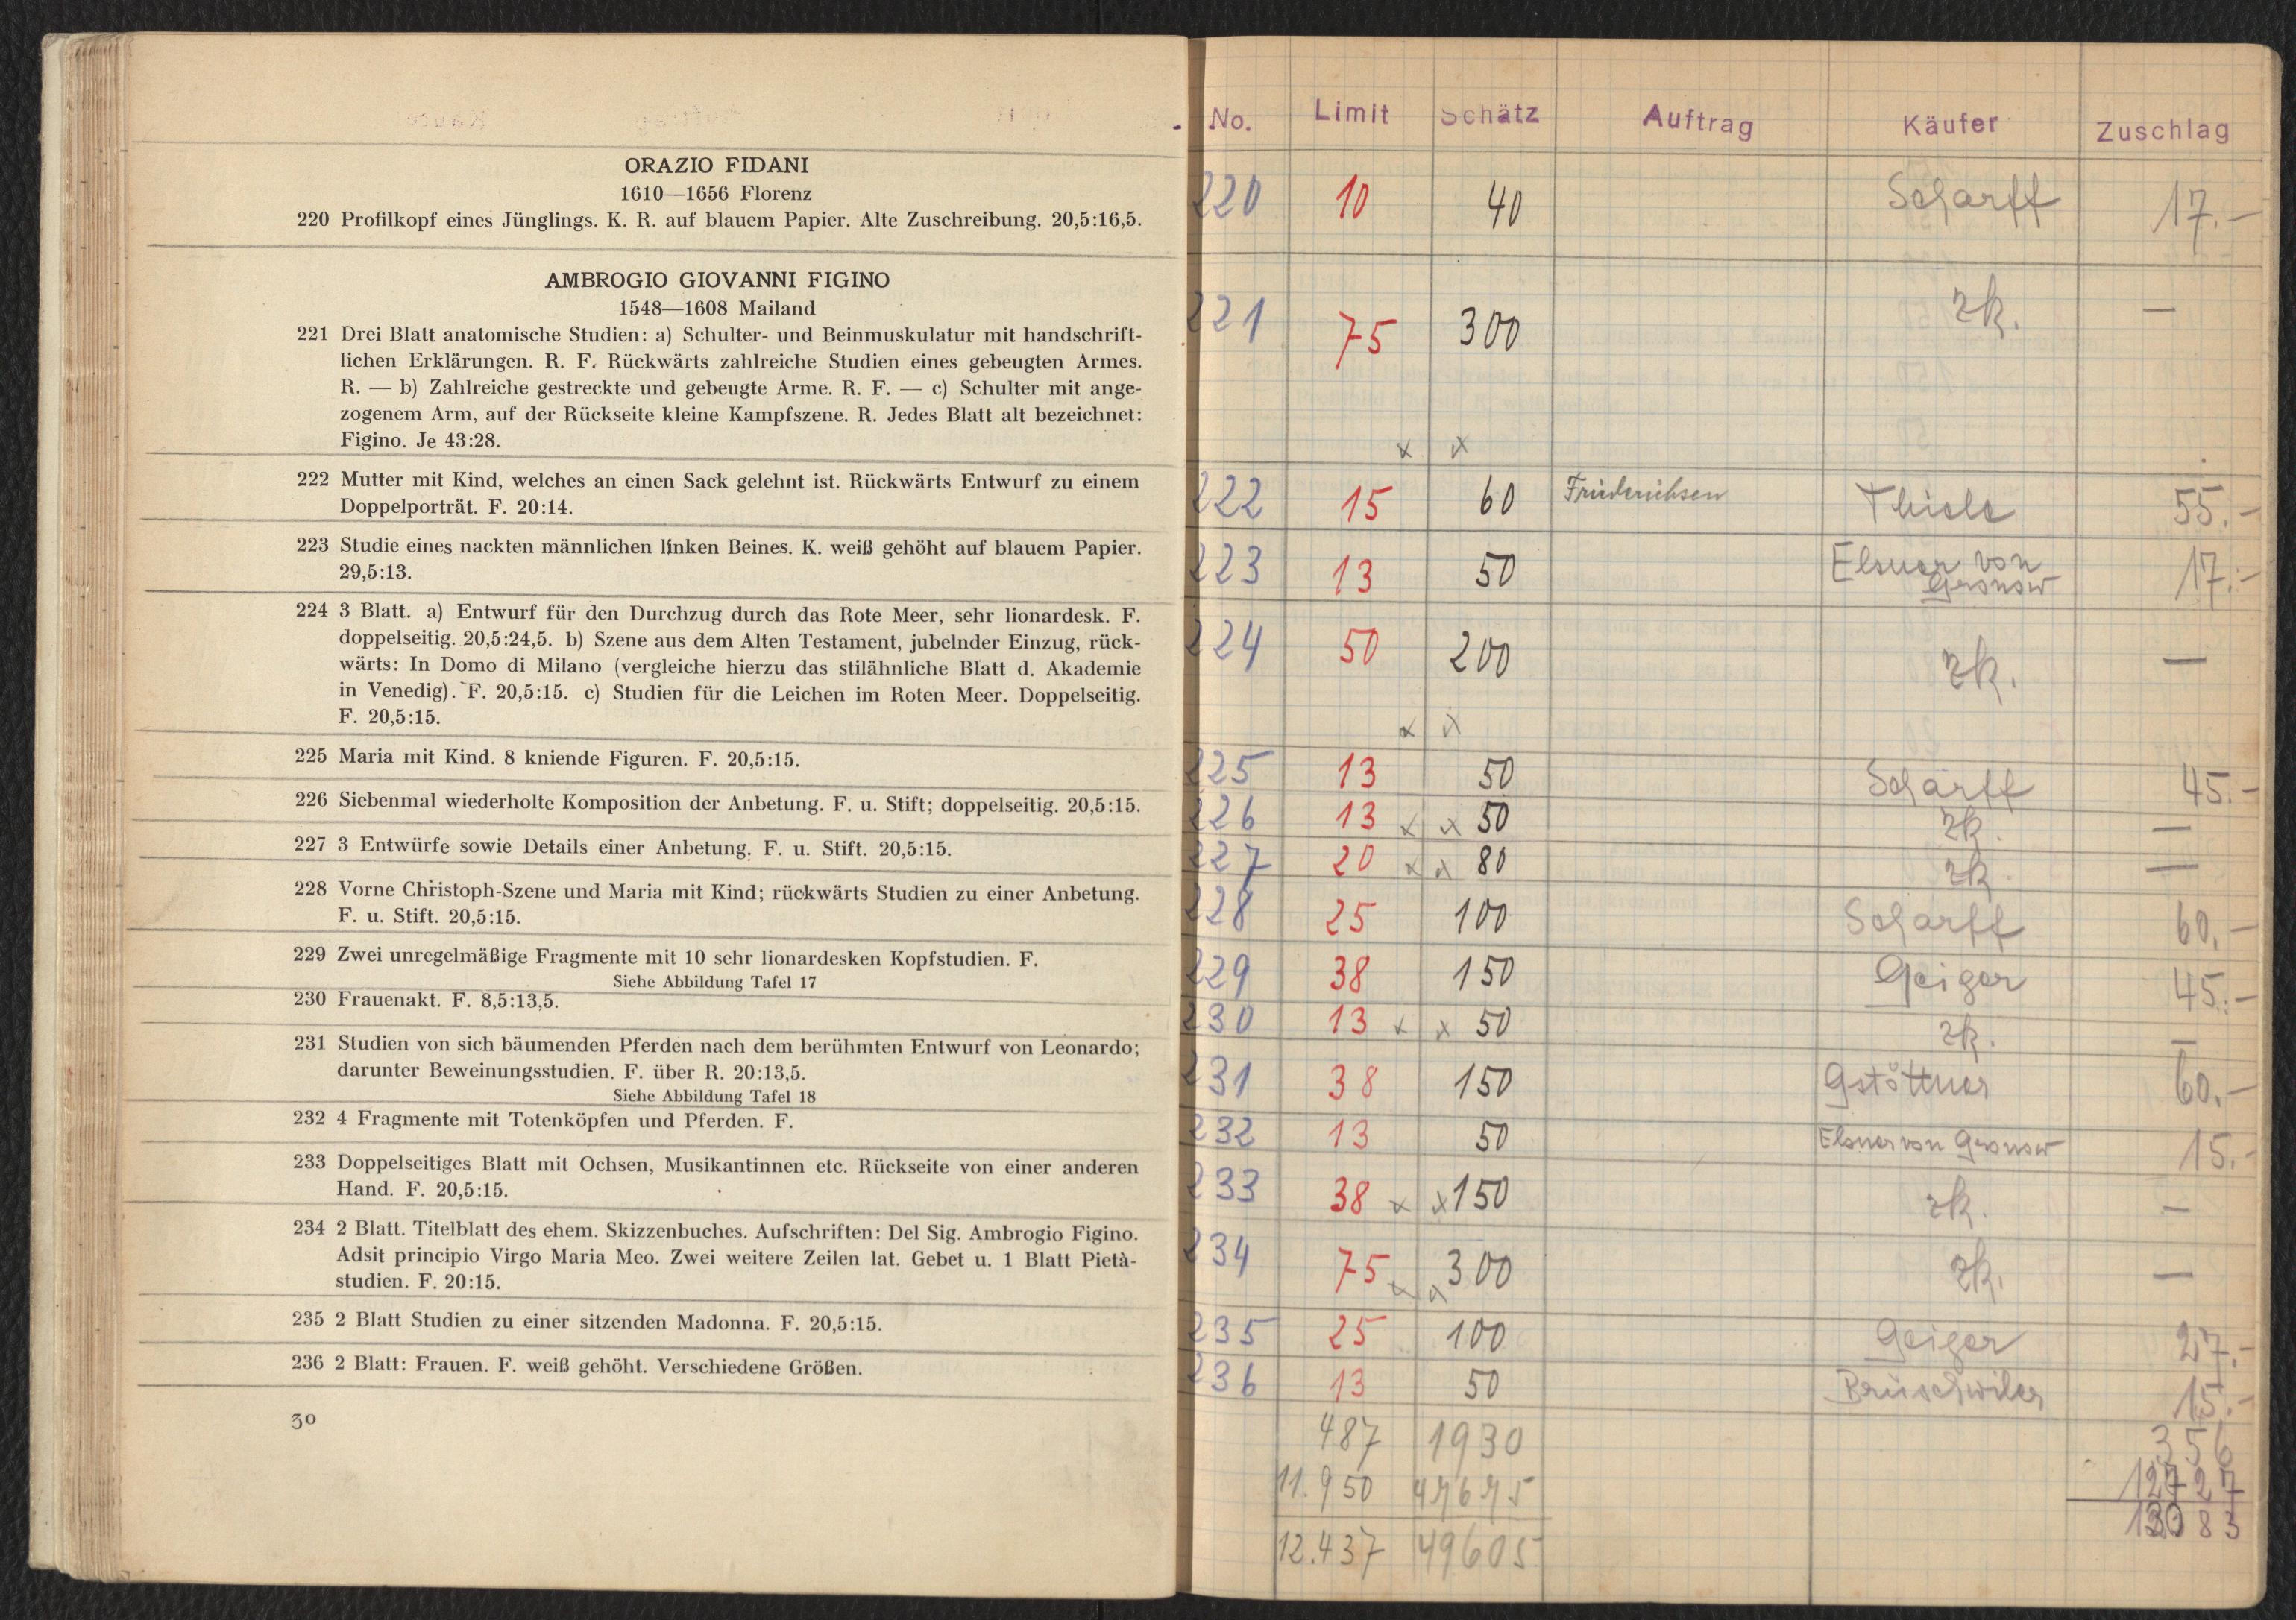 ORAZIO FIDANI
1610—1656 Florenz
220 Profilkopf eines Jünglings. K. R. auf blauem Papier. Alte Zuschreibung. 20,5:16,5.
AMBROGIO GIOVANNI FIGINO
1548—1608 Mailand
221 Drei Blatt anatomische Studien: a) Schulter- und Beinmuskulatur mit handschrift-
lichen Erklärungen. R. F. Rückwärts zahlreiche Studien eines gebeugten Armes.
R. — b) Zahlreiche gestreckte und gebeugte Arme. R. F. — c) Schulter mit ange-
zogenem Arm, auf der Rückseite kleine Kampfszene. R. Jedes Blatt alt bezeichnet:
Figino. Je 43:28.
222 Mutter mit Kind, welches an einen Sack gelehnt ist. Rückwärts Entwurf zu einem
Doppelporträt. F. 20:14.
223 Studie eines nackten männlichen linken Beines. K. weiß gehöht auf blauem Papier.
29,5:13.
224 3 Blatt. a) Entwurf für den Durchzug durch das Rote Meer, sehr lionardesk. F.
doppelseitig. 20,5:24,5. b) Szene aus dem Alten Testament, jubelnder Einzug, rück-
wärts: In Domo di Milano (vergleiche hierzu das stilähnliche Blatt d. Akademie
in Venedig). F. 20,5:15. c) Studien für die Leichen im Roten Meer. Doppelseitig.
F. 20,5:15.
225 Maria mit Kind. 8 kniende Figuren. F. 20,5:15.
226 Siebenmal wiederholte Komposition der Anbetung. F. u. Stift; doppelseitig. 20,5:15.
227 3 Entwürfe sowie Details einer Anbetung. F. u. Stift. 20,5:15.
228 Vorne Christoph-Szene und Maria mit Kind; rückwärts Studien zu einer Anbetung.
F. u. Stift. 20,5:15.
229 Zwei unregelmäßige Fragmente mit 10 sehr lionardesken Kopfstudien. F.
Siehe Abbildung Tafel 17
230 Frauenakt. F. 8,5:13,5.
231 Studien von sich bäumenden Pferden nach dem berühmten Entwurf von Leonardo;
darunter Beweinungsstudien. F. über R. 20:13,5.
Siehe Abbildung Tafel 18
232 4 Fragmente mit Totenköpfen und Pferden. F.
233 Doppelseitiges Blatt mit Ochsen, Musikantinnen etc. Rückseite von einer anderen
Hand. F. 20,5:15.
234 2 Blatt. Titelblatt des ehem. Skizzenbuches. Aufschriften: Del Sig. Ambrogio Figino.
Adsit principio Virgo Maria Meo. Zwei weitere Zeilen lat. Gebet u. 1 Blatt Pietà-
studien. F. 20:15.
235 2 Blatt Studien zu einer sitzenden Madonna. F. 20,5:15.
236 2 Blatt: Frauen. F. weiß gehöht. Verschiedene Größen.
30
No. Limit Schätz Auftrag Käufer Zuschlag
220 10 40 Scharff 17.—
221 75 300 zk. —
x x
222 15 60 Friederichsen Thiele 55.—
223 13 50 Elsner von Gronow 17.—
224 50 200 zk. —
x x
225 13 50 Scharff 45.—
226 13 x x 50 zk. —
227 20 x x 80 zk. —
228 25 100 Scharff 60.—
229 38 150 Geiger 45.—
230 13 x x 50 zk. —
231 38 150 Gstöttner 60.—
232 13 50 Elsner von Gronow 15.—
233 38 x x 150 zk. —
234 75 x x 300 zk. —
235 25 100 Geiger 27.—
236 13 50 Brüschwiler 15.—
487 1930 356
11.950 47675 12727
12.437 49605 13083